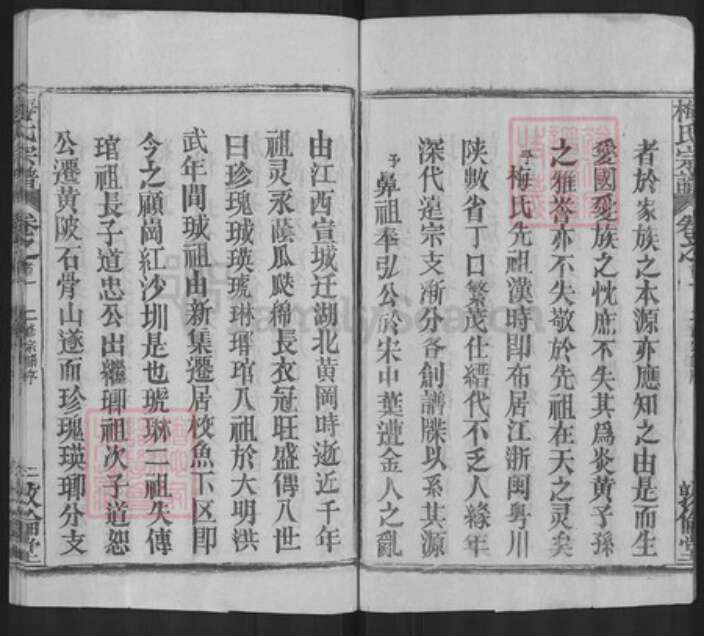 梅氏宗譜
者於家族之本源亦應知之由是而生
愛國愛族之忱庶不失其爲炎黃子孫
之雅誉亦不失敬於先祖在天之灵矣
予梅氏先祖漢時即布居江浙闽粤川
陕数省丁口繁茂仕縉代不乏人緣年
深代遠宗支渐分各創譜牒以系其源
予鼻祖奉弘公於宋中葉遭金人之亂
敦倫堂
由江西宣城迁湖北黄岡時逝近千年
祖灵永蔭瓜瓞綿長衣冠旺盛傳八世
曰珍瑰珹瑛琥琳瑂琯八祖於大明洪
武年間珹祖由新集遷居校魚下区即
今之顧崗紅沙圳是也琥琳二祖失傳
琯祖長子道忠公出繼瑂祖次子道恕
公遷黄陂石骨山遂而珍瑰瑛瑂分支
梅氏宗譜
敦倫堂
FamilySearch